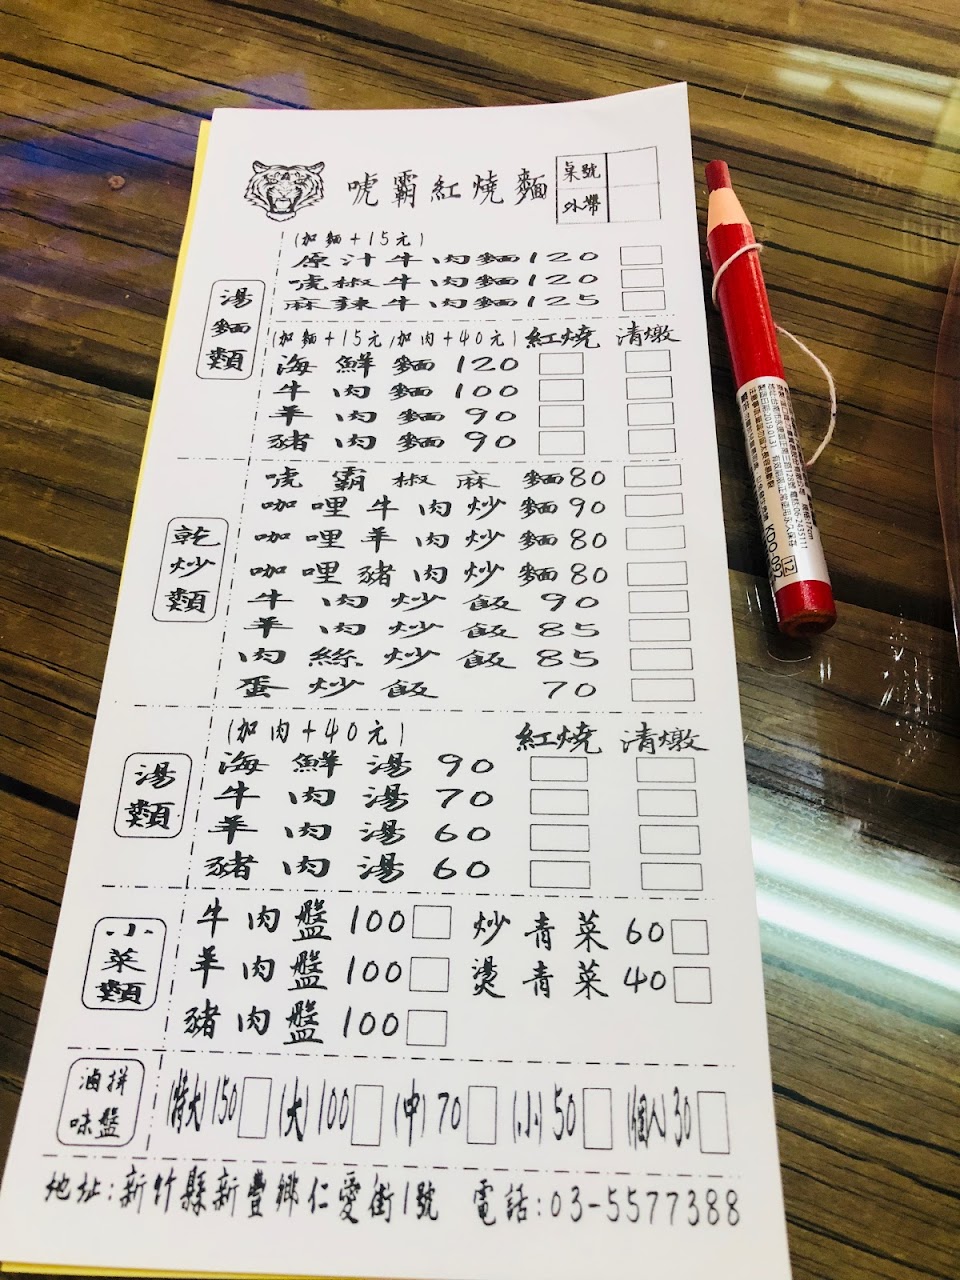 唬霸紅燒麵
桌號
外帶
湯麵類
(加麵+15元)
原汁牛肉麵120
唬椒牛肉麵120
麻辣牛肉麵125
(加麵+15元,加肉+40元) 紅燒 清燉
海鮮麵 120
牛肉麵 100
羊肉麵 90
豬肉麵 90
乾炒類
唬霸椒麻麵80
咖哩牛肉炒麵90
咖哩羊肉炒麵80
咖哩豬肉炒麵80
牛肉炒飯 90
羊肉炒飯 85
肉絲炒飯 85
蛋炒飯 70
湯類
(加肉+40元) 紅燒 清燉
海鮮湯 90
牛肉湯 70
羊肉湯 60
豬肉湯 60
小菜類
牛肉盤 100 炒青菜 60
羊肉盤 100 燙青菜 40
豬肉盤 100
滷味拼盤
(特大)150 (大)100 (中)70 (小)50 (個人)30
地址:新竹縣新豐鄉仁愛街1號 電話:03-5577388
KDO-092
12